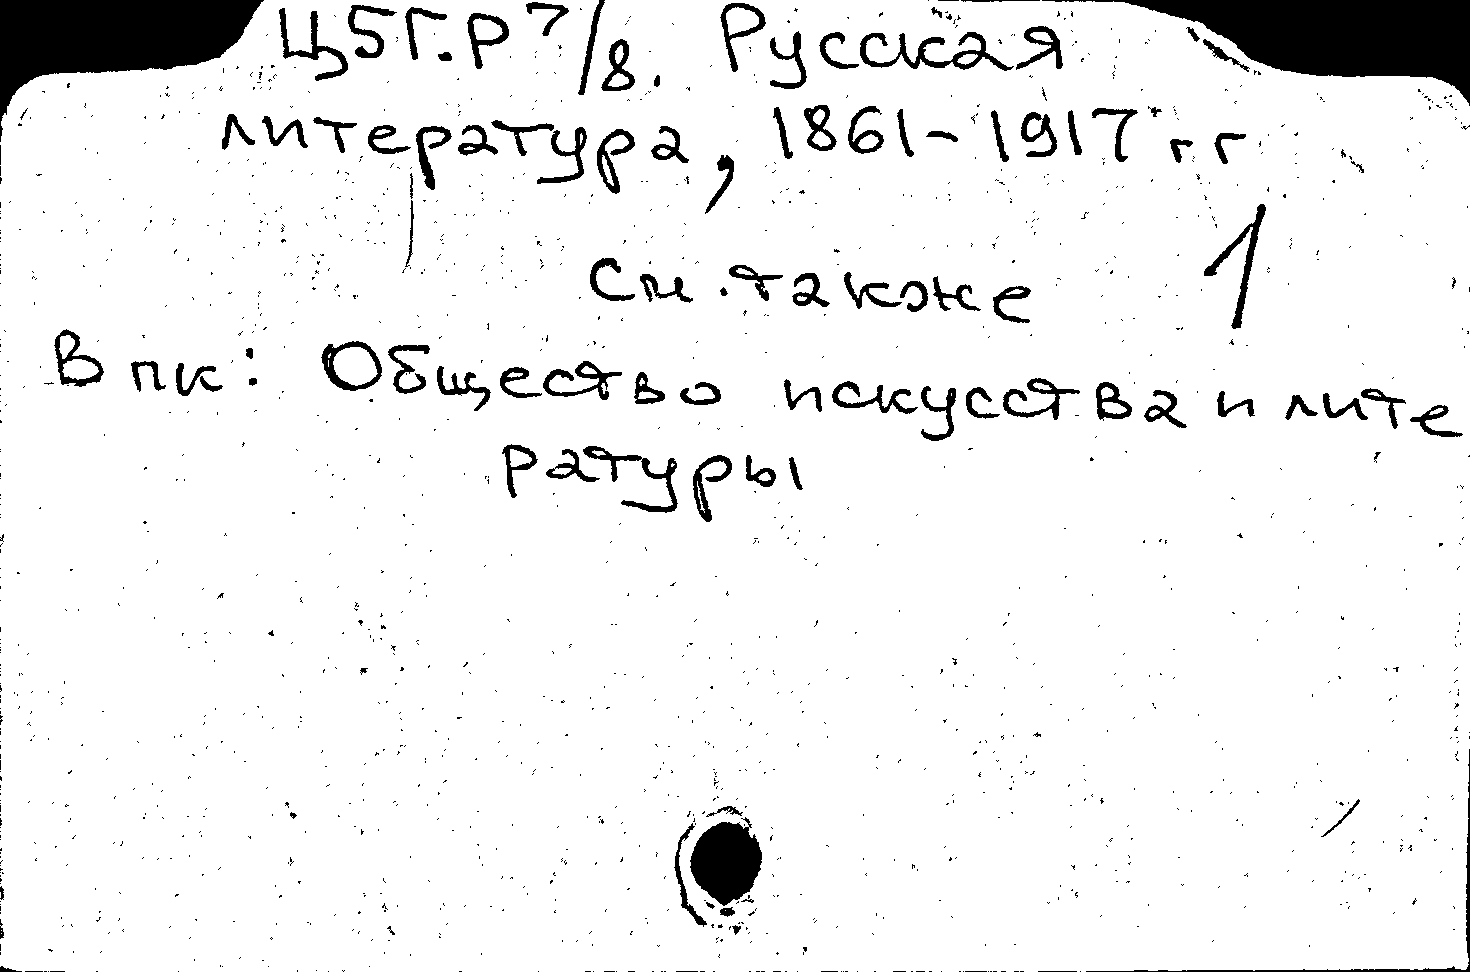 Ц5Г.Р 7/8. Русская
литература, 1861-1917 гг
1
См. также
В пк: Общество искусства и лите
ратуры